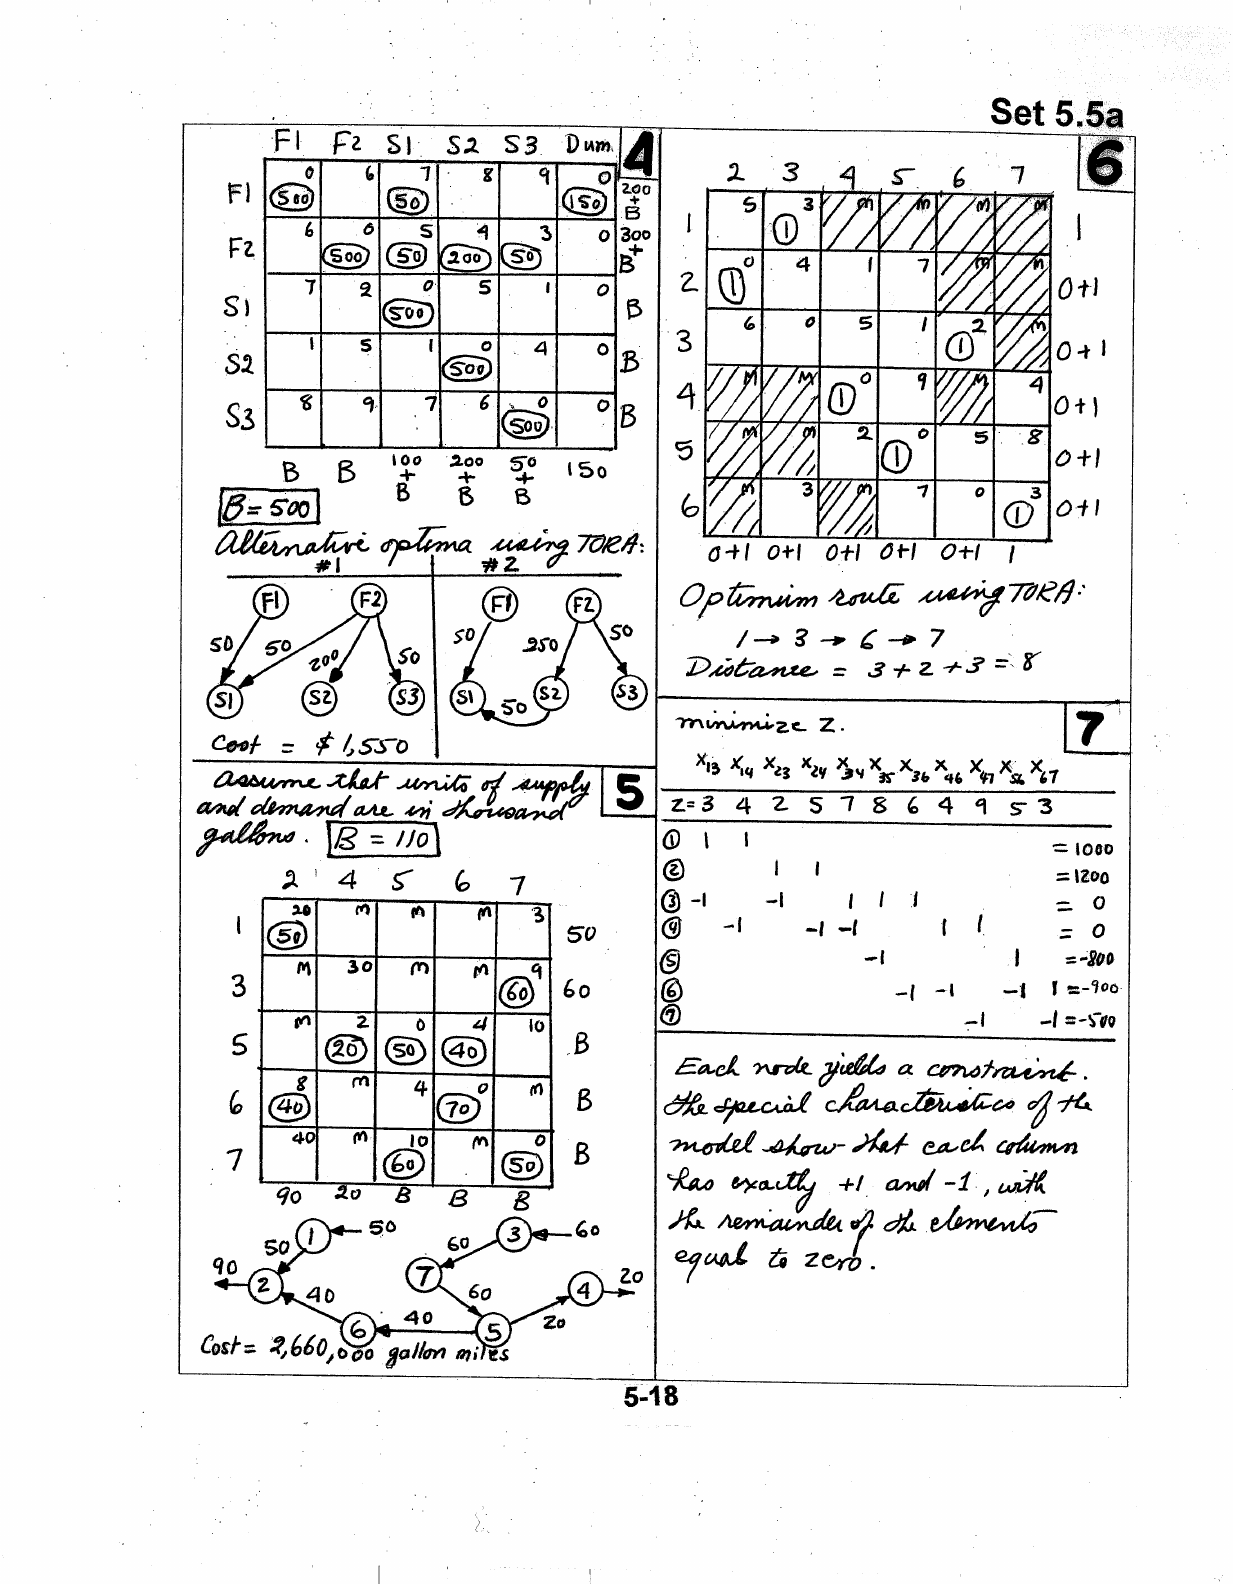 Set 5.5a
4
F1 F2 S1 S2 S3 Dum.
F1 0 6 7 8 9 0 200 + B
500 50 150
F2 6 0 5 4 3 0 300 + B
500 50 200 50
S1 7 2 0 5 1 0 B
500
S2 1 5 1 0 4 0 B
500
S3 8 9 7 6 0 0 B
500
B B 100 + B 200 + B 50 + B 150
B = 500
Alternative optima using TORA:
#1 #2
F1 F2 F1 F2
50 50 200 50 50 250 50
S1 S2 S3 S1 50 S2 S3
Cost = $ 1,550
5
Assume that units of supply
and demand are in thousand
gallons. B = 110
2 4 5 6 7
1 20 M M M 3 50
50
3 M 30 M M 9 60
60
5 M 2 0 4 10 B
20 50 40
6 8 M 4 0 M B
40 70
7 40 M 10 M 0 B
60 50
90 20 B B B
1 50 3 60
50 60
90 2 7 4 20
40 60
6 40 5 20
Cost = 2,660,000 gallon miles
6
2 3 4 5 6 7
1 5 3 M M M M 1
1
2 0 4 1 7 M M 0+1
1
3 6 0 5 1 2 M 0+1
1
4 M M 0 9 M 4 0+1
1
5 M M 2 0 5 8 0+1
1
6 M 3 M 7 0 3 0+1
1
0+1 0+1 0+1 0+1 0+1 1
Optimum route using TORA:
1 → 3 → 6 → 7
Distance = 3 + 2 + 3 = 8
7
minimize z.
x13 x14 x23 x24 x34 x35 x36 x46 x47 x56 x67
Z= 3 4 2 5 7 8 6 4 9 5 3
① 1 1 = 1000
② 1 1 = 1200
③ -1 -1 1 1 1 = 0
④ -1 -1 -1 1 1 = 0
⑤ -1 1 = -800
⑥ -1 -1 -1 1 = -900
⑦ -1 -1 = -500
Each node yields a constraint.
The special characteristics of the
model show that each column
has exactly +1 and -1, with
the remainder of the elements
equal to zero.
5-18